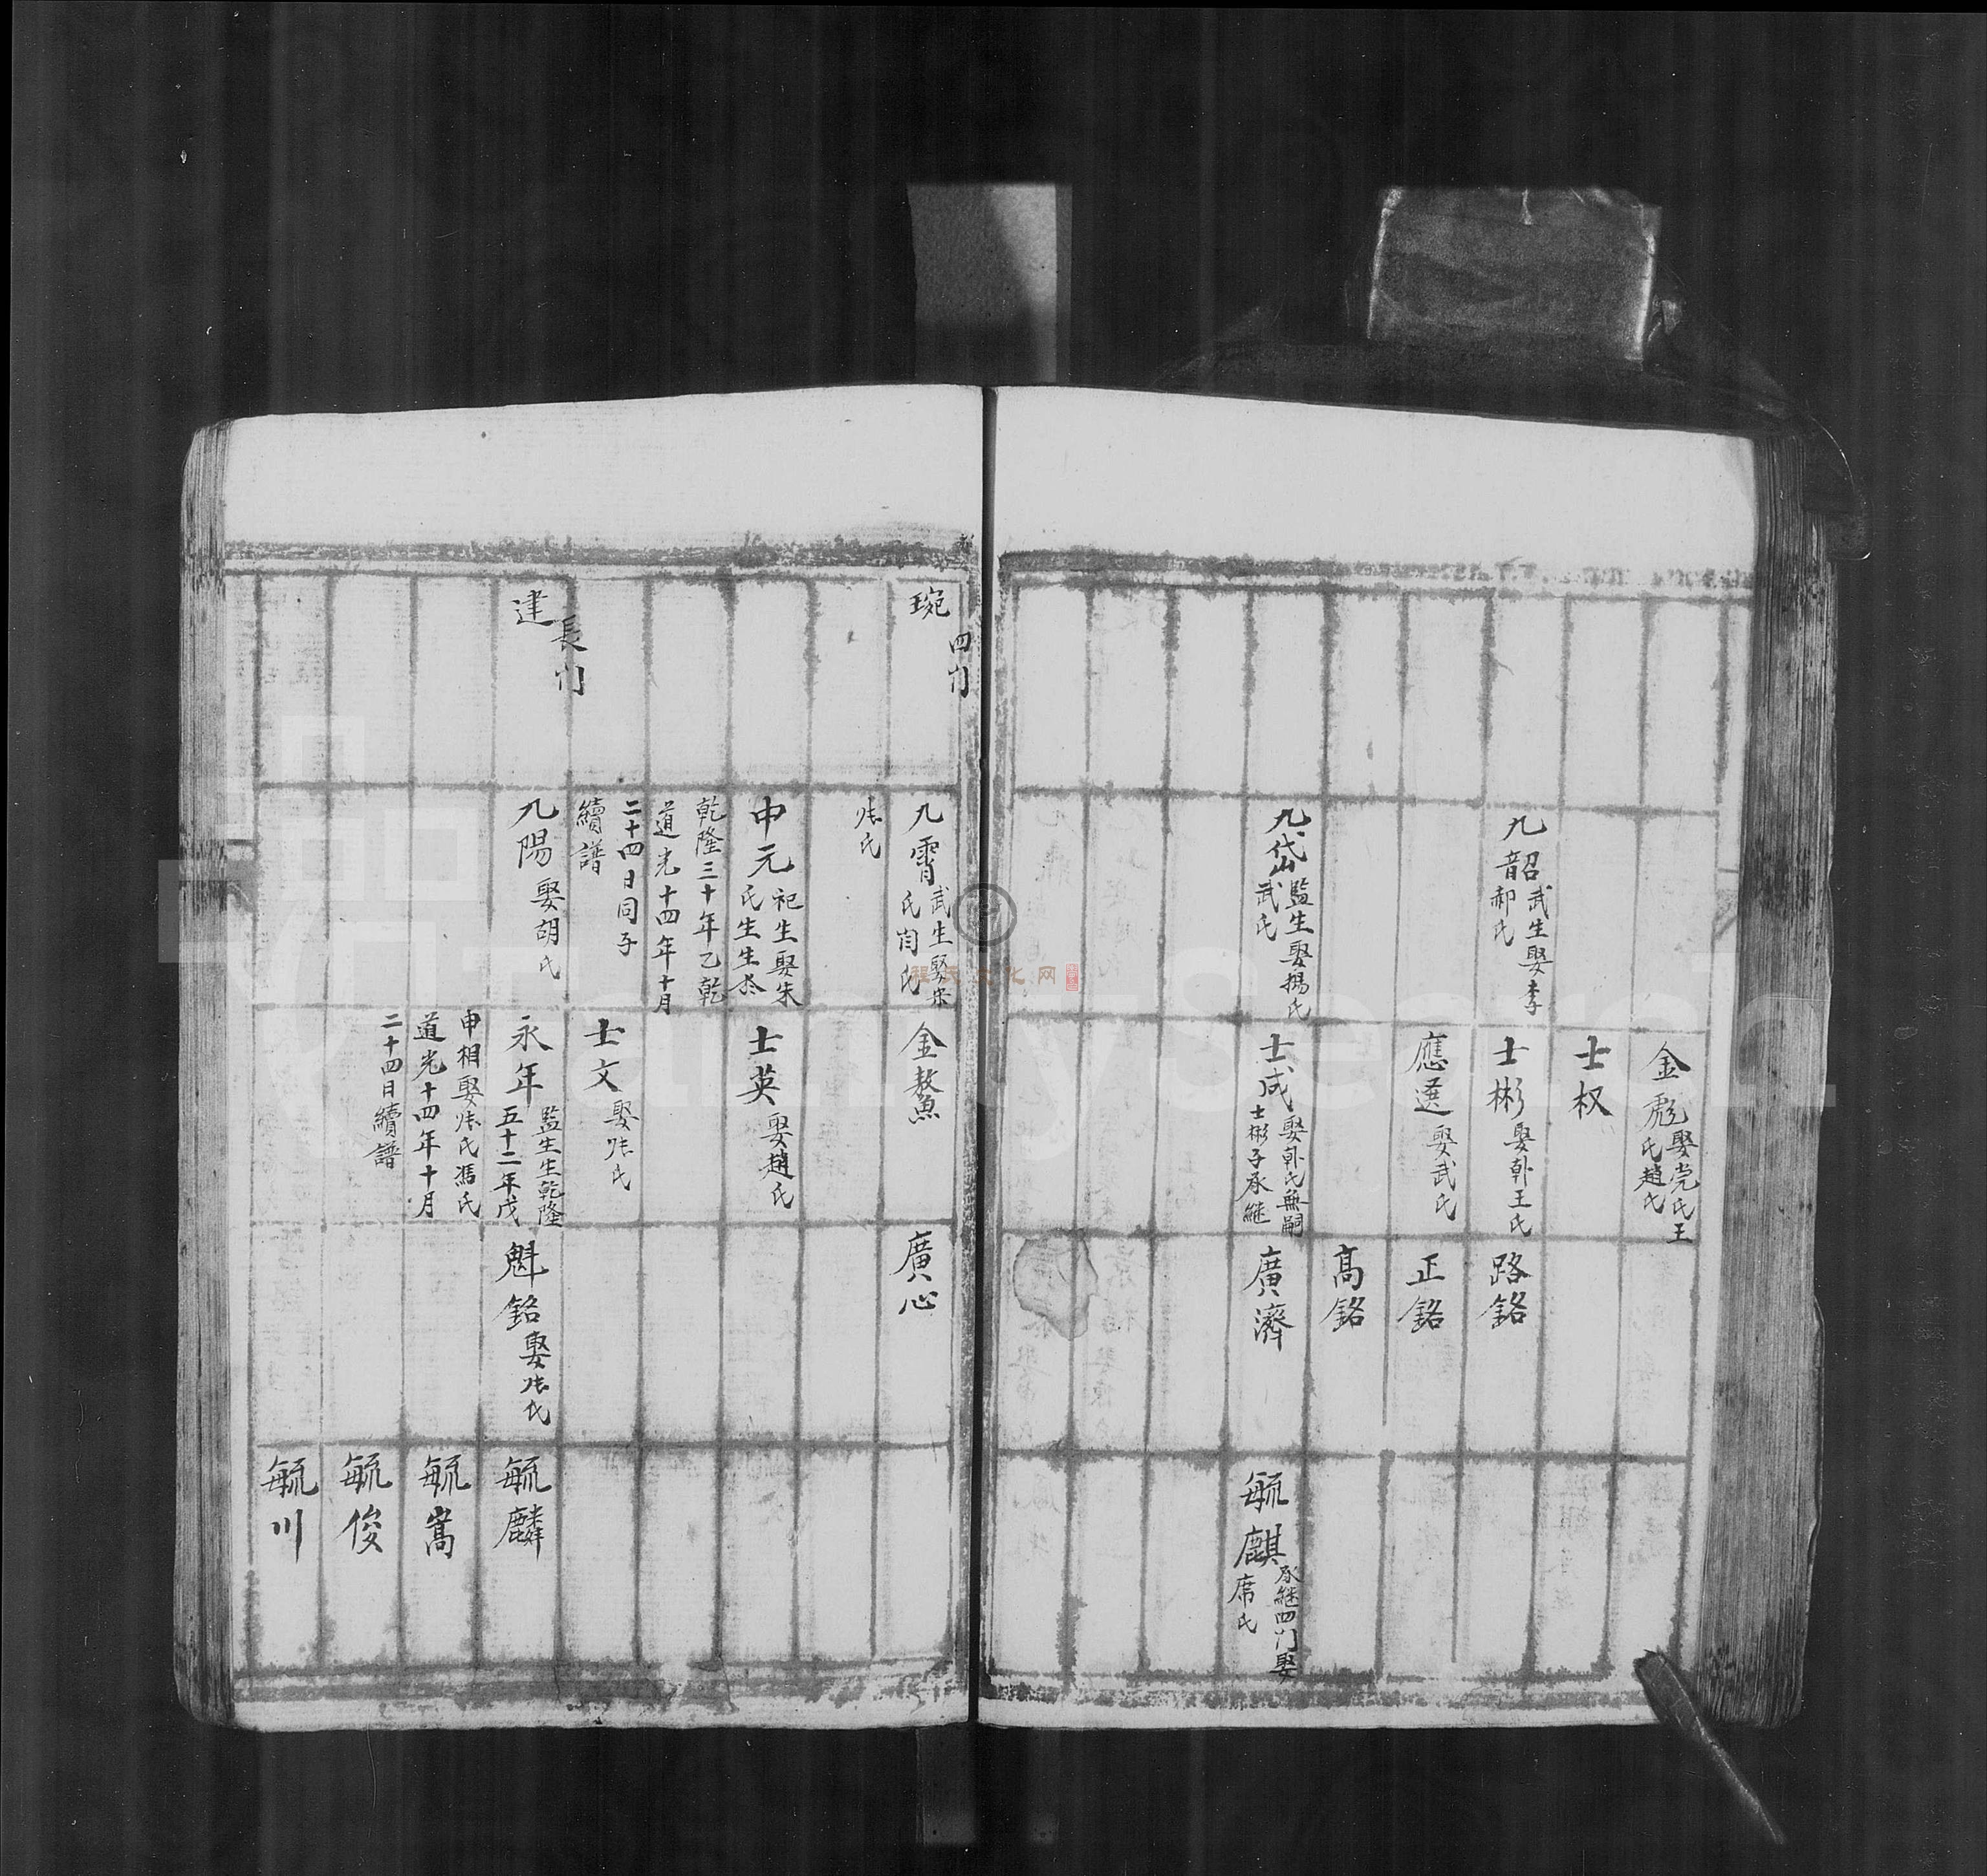 金彪娶党氏王
氏趙氏
士权
九韶武生娶李
郝氏
士彬娶韩王氏
路铭
應選娶武氏
正銘
高銘
九岱監生娶楊氏
武氏
士成娶韩氏無嗣
士彬子承継
廣濟
毓麒承継四门娶
席氏
四门
琬
九霄武生娶宋
氏闫氏
张氏
金鰲
廣心
申元祀生娶朱
氏生生於
乾隆三十年乙乾
道光十四年十月
二十四日同子
續譜
士英娶趙氏
士文娶张氏
長门
建
九陽娶胡氏
永年監生生乾隆
五十二年戊
申相娶张氏馮氏
道光十四年十月
二十四日續譜
魁銘娶张氏
毓麟
毓嵩
毓俊
毓川
FamilySearch
程氏文化网